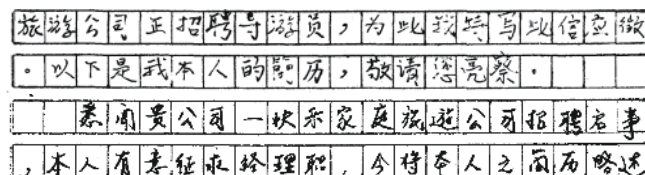 旅游公司正招聘导游员，为此我特写此信应徵
。以下是我本人的简历，敬请您亮察。
悉闻贵公司一快乐家庭旅遊公司招聘启事
，本人有意征求经理职，今将本人之简历略述